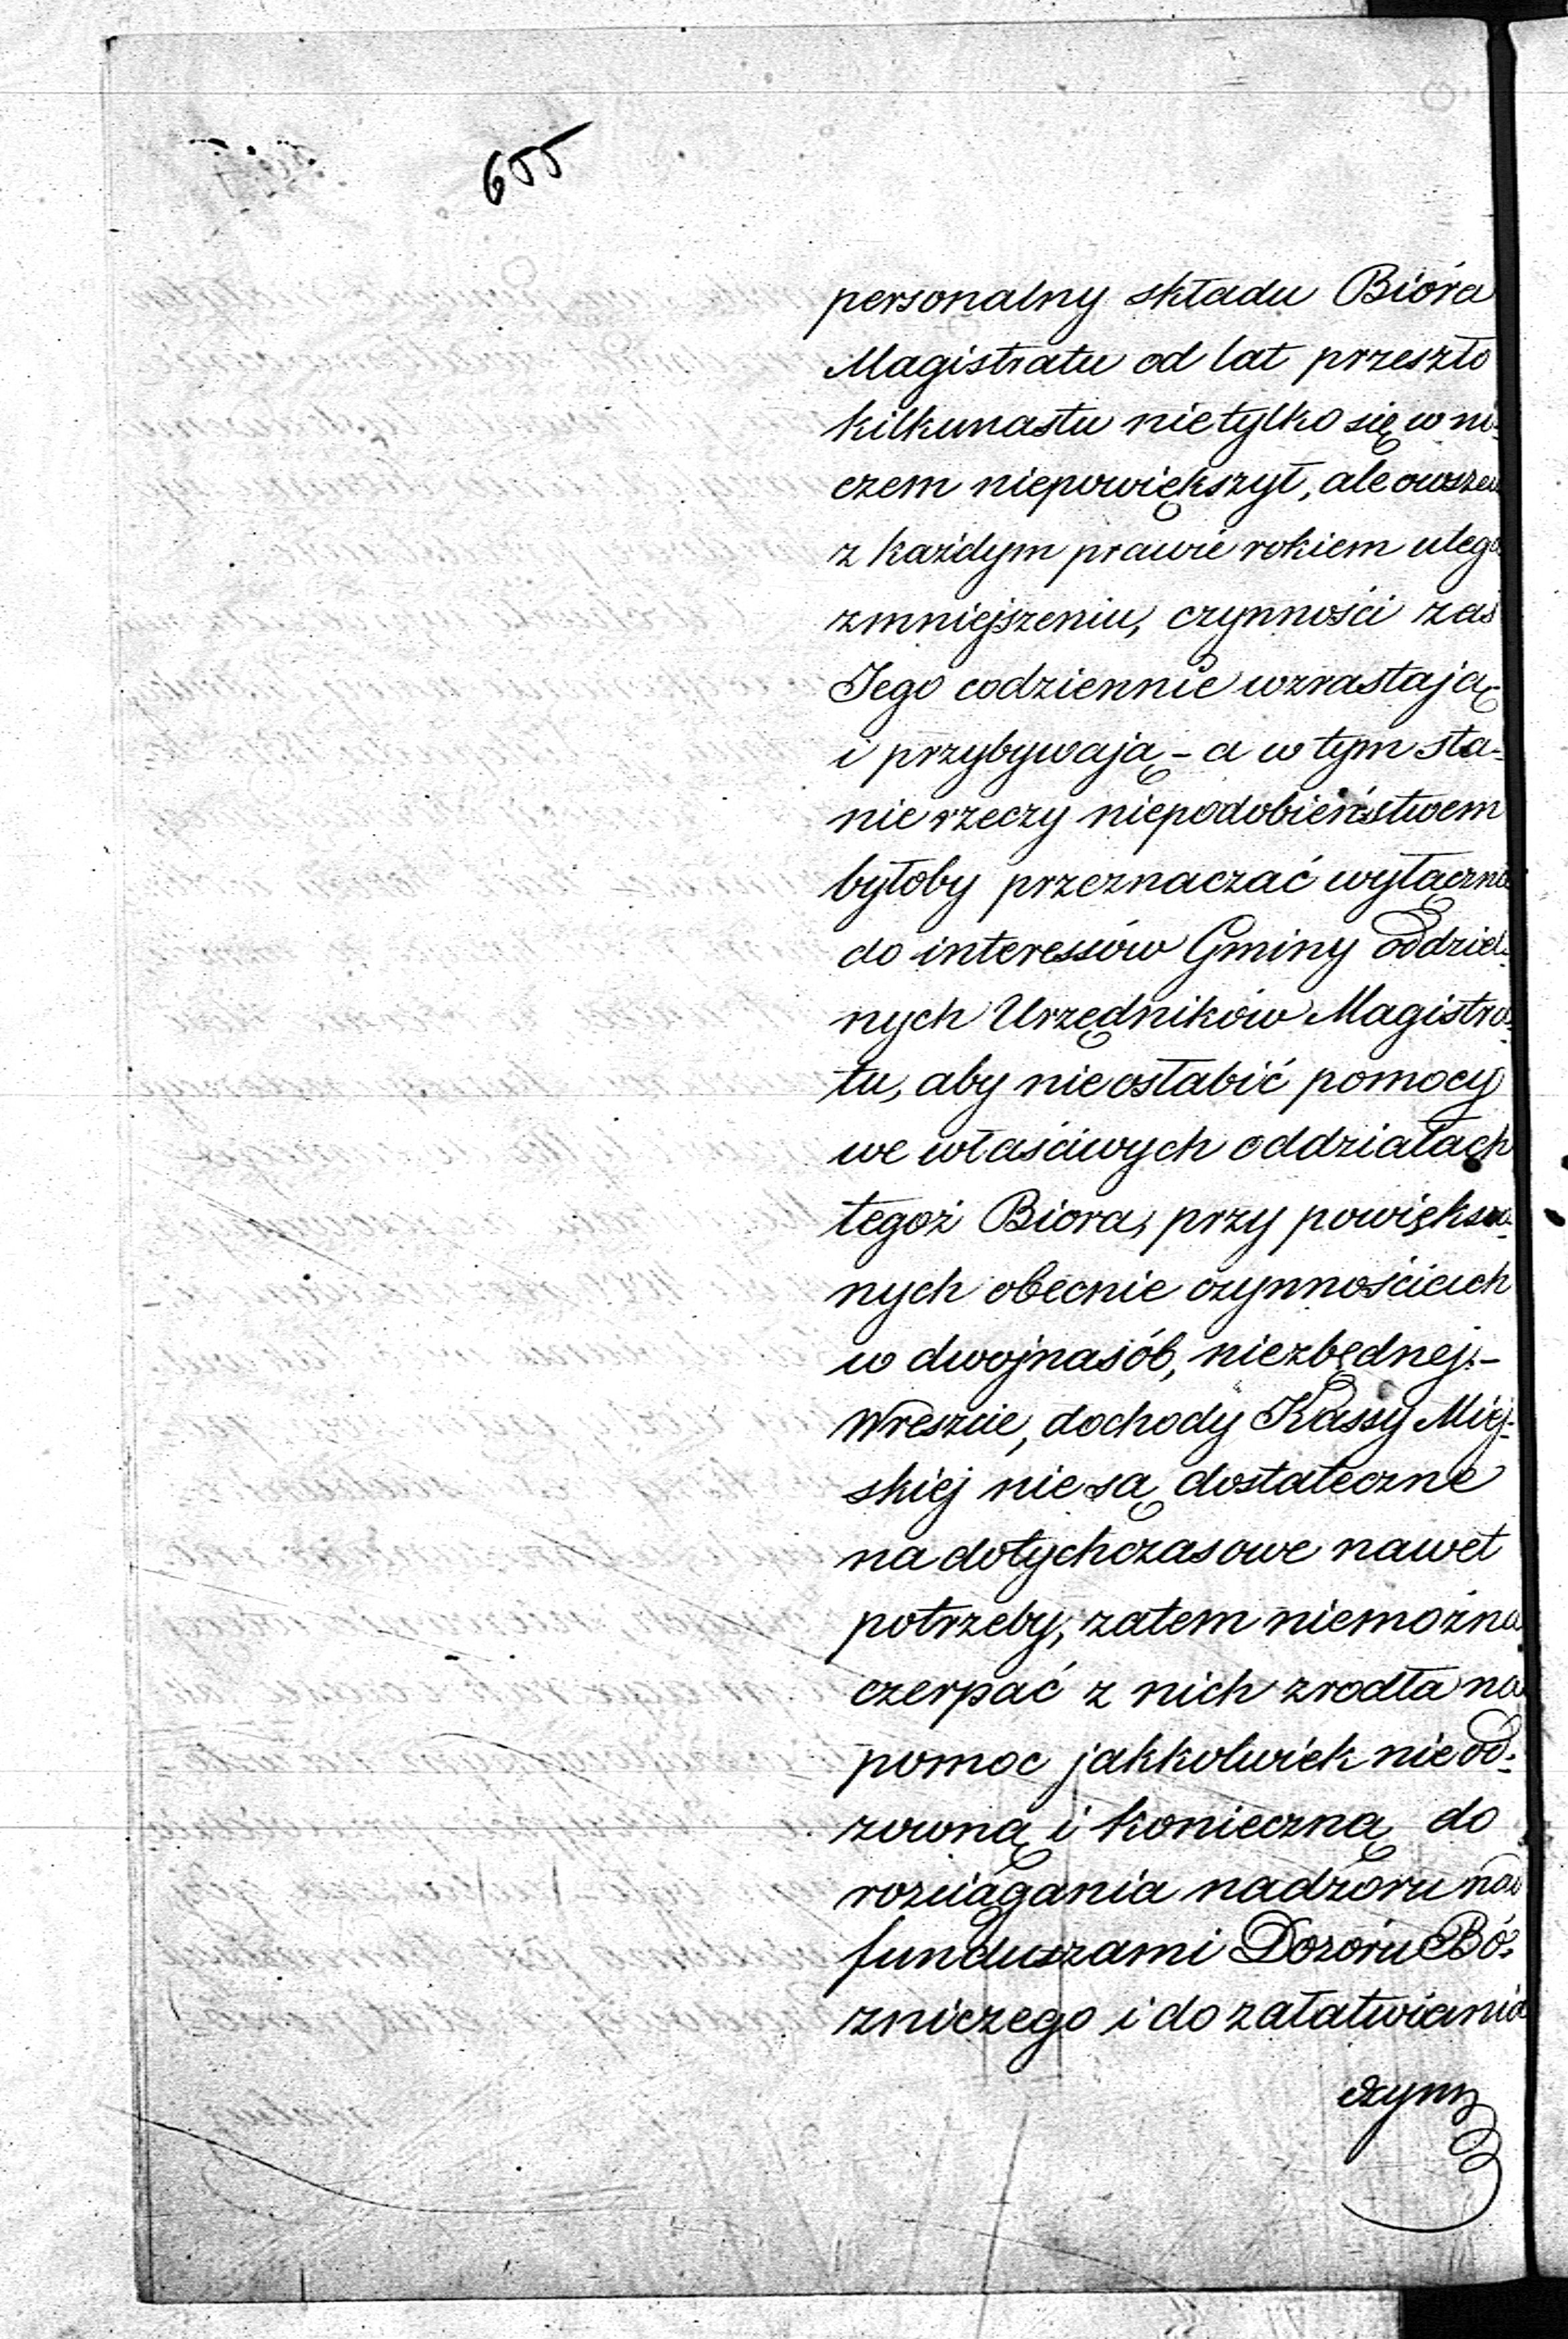 655
personalny składu Bióra
Magistratu od lat przeszło
kilkunastu nietylko się w ni-
czem niepowiększył, ale owszem
z każdym prawie rokiem ulega
zmniejszeniu, czynności zaś
Jego codziennie wzrastają
i przybywają - a w tym sta-
nie rzeczy niepodobieństwem
byłoby przeznaczać wyłącznie
do interessów Gminy oddziel-
nych Urzędników Magistra-
tu, aby nie osłabić pomocy
we właściwych oddziałach
tegoż Biora, przy powiększo-
nych obecnie czynnościach
w dwojnasób, niezbędnej. -
Wreszcie, dochody Kassy Miej-
skiej nie są dostateczne
na dotychczasowe nawet
potrzeby, zatem niemożna
czerpać z nich zrodła na
pomoc jakkolwiek nieod-
zowną i konieczną do
rozciągania nadzoru nad
funduszami Dozóru Bó-
zniczego i do załatwiania
czyn